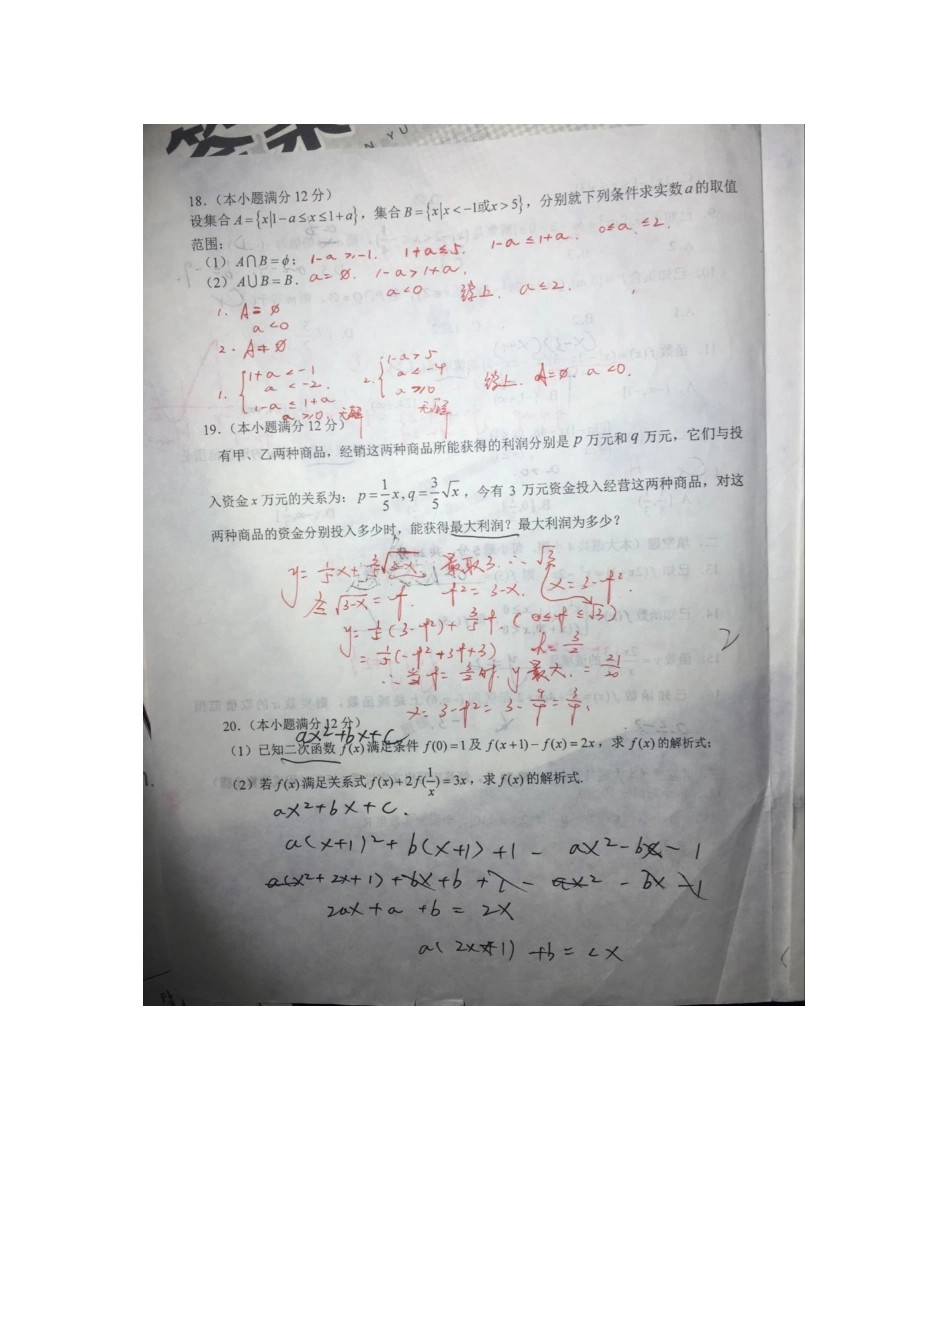 N YU
18.（本小题满分 12 分）
设集合 A={x|1-a≤x≤1+a}，集合 B={x|x<-1或x>5}，分别就下列条件求实数 a 的取值
范围：
（1）A∩B=ϕ； 1-a≥-1. 1+a≤5. 1-a≤1+a. 0≤a≤2.
（2）A∪B=B. a=∅. 1-a>1+a.
a<0 综上. a≤2.
1. A=∅
a<0
2. A≠∅
1. { 1+a<-1 2. { 1-a>5
a<-2. a<-4
1-a≤1+a a≥0
a≥0. 无解 无解
综上. A=∅. a<0.
19.（本小题满分 12 分）
有甲、乙两种商品，经销这两种商品所能获得的利润分别是 p 万元和 q 万元，它们与投
入资金 x 万元的关系为：p=1/5x, q=3/5√x，今有 3 万元资金投入经营这两种商品，对这
两种商品的资金分别投入多少时，能获得最大利润？最大利润为多少？
y= 1/5x+
√3-x = t. t²=3-x. x=3-t²
y=1/5(3-t²)+3/5t. (0≤t≤√3)
=1/5(-t²+3t+3) t=3/2
∴当t=3/2时. y最大.=21/20
x=3-t²=3-9/4=3/4.
2
20.（本小题满分 12 分）
ax²+bx+c
（1）已知二次函数 f(x)满足条件 f(0)=1及 f(x+1)-f(x)=2x，求 f(x)的解析式；
（2）若 f(x)满足关系式 f(x)+2f(1/x)=3x，求 f(x)的解析式.
ax²+bx+c.
a(x+1)²+b(x+1)+1- ax²-bx-1
a(x²+2x+1)+bx+b+1-ax²-bx-1
2ax+a+b=2x
a(2x+1)+b=2x